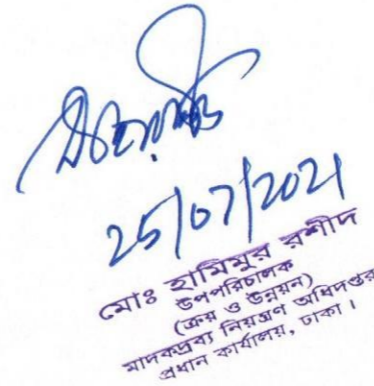 25/07/2021
মোঃ হামিমুর রশীদ
উপপরিচালক
(ক্রয় ও উন্নয়ন)
মাদকদ্রব্য নিয়ন্ত্রণ অধিদপ্তর
প্রধান কার্যালয়, ঢাকা।